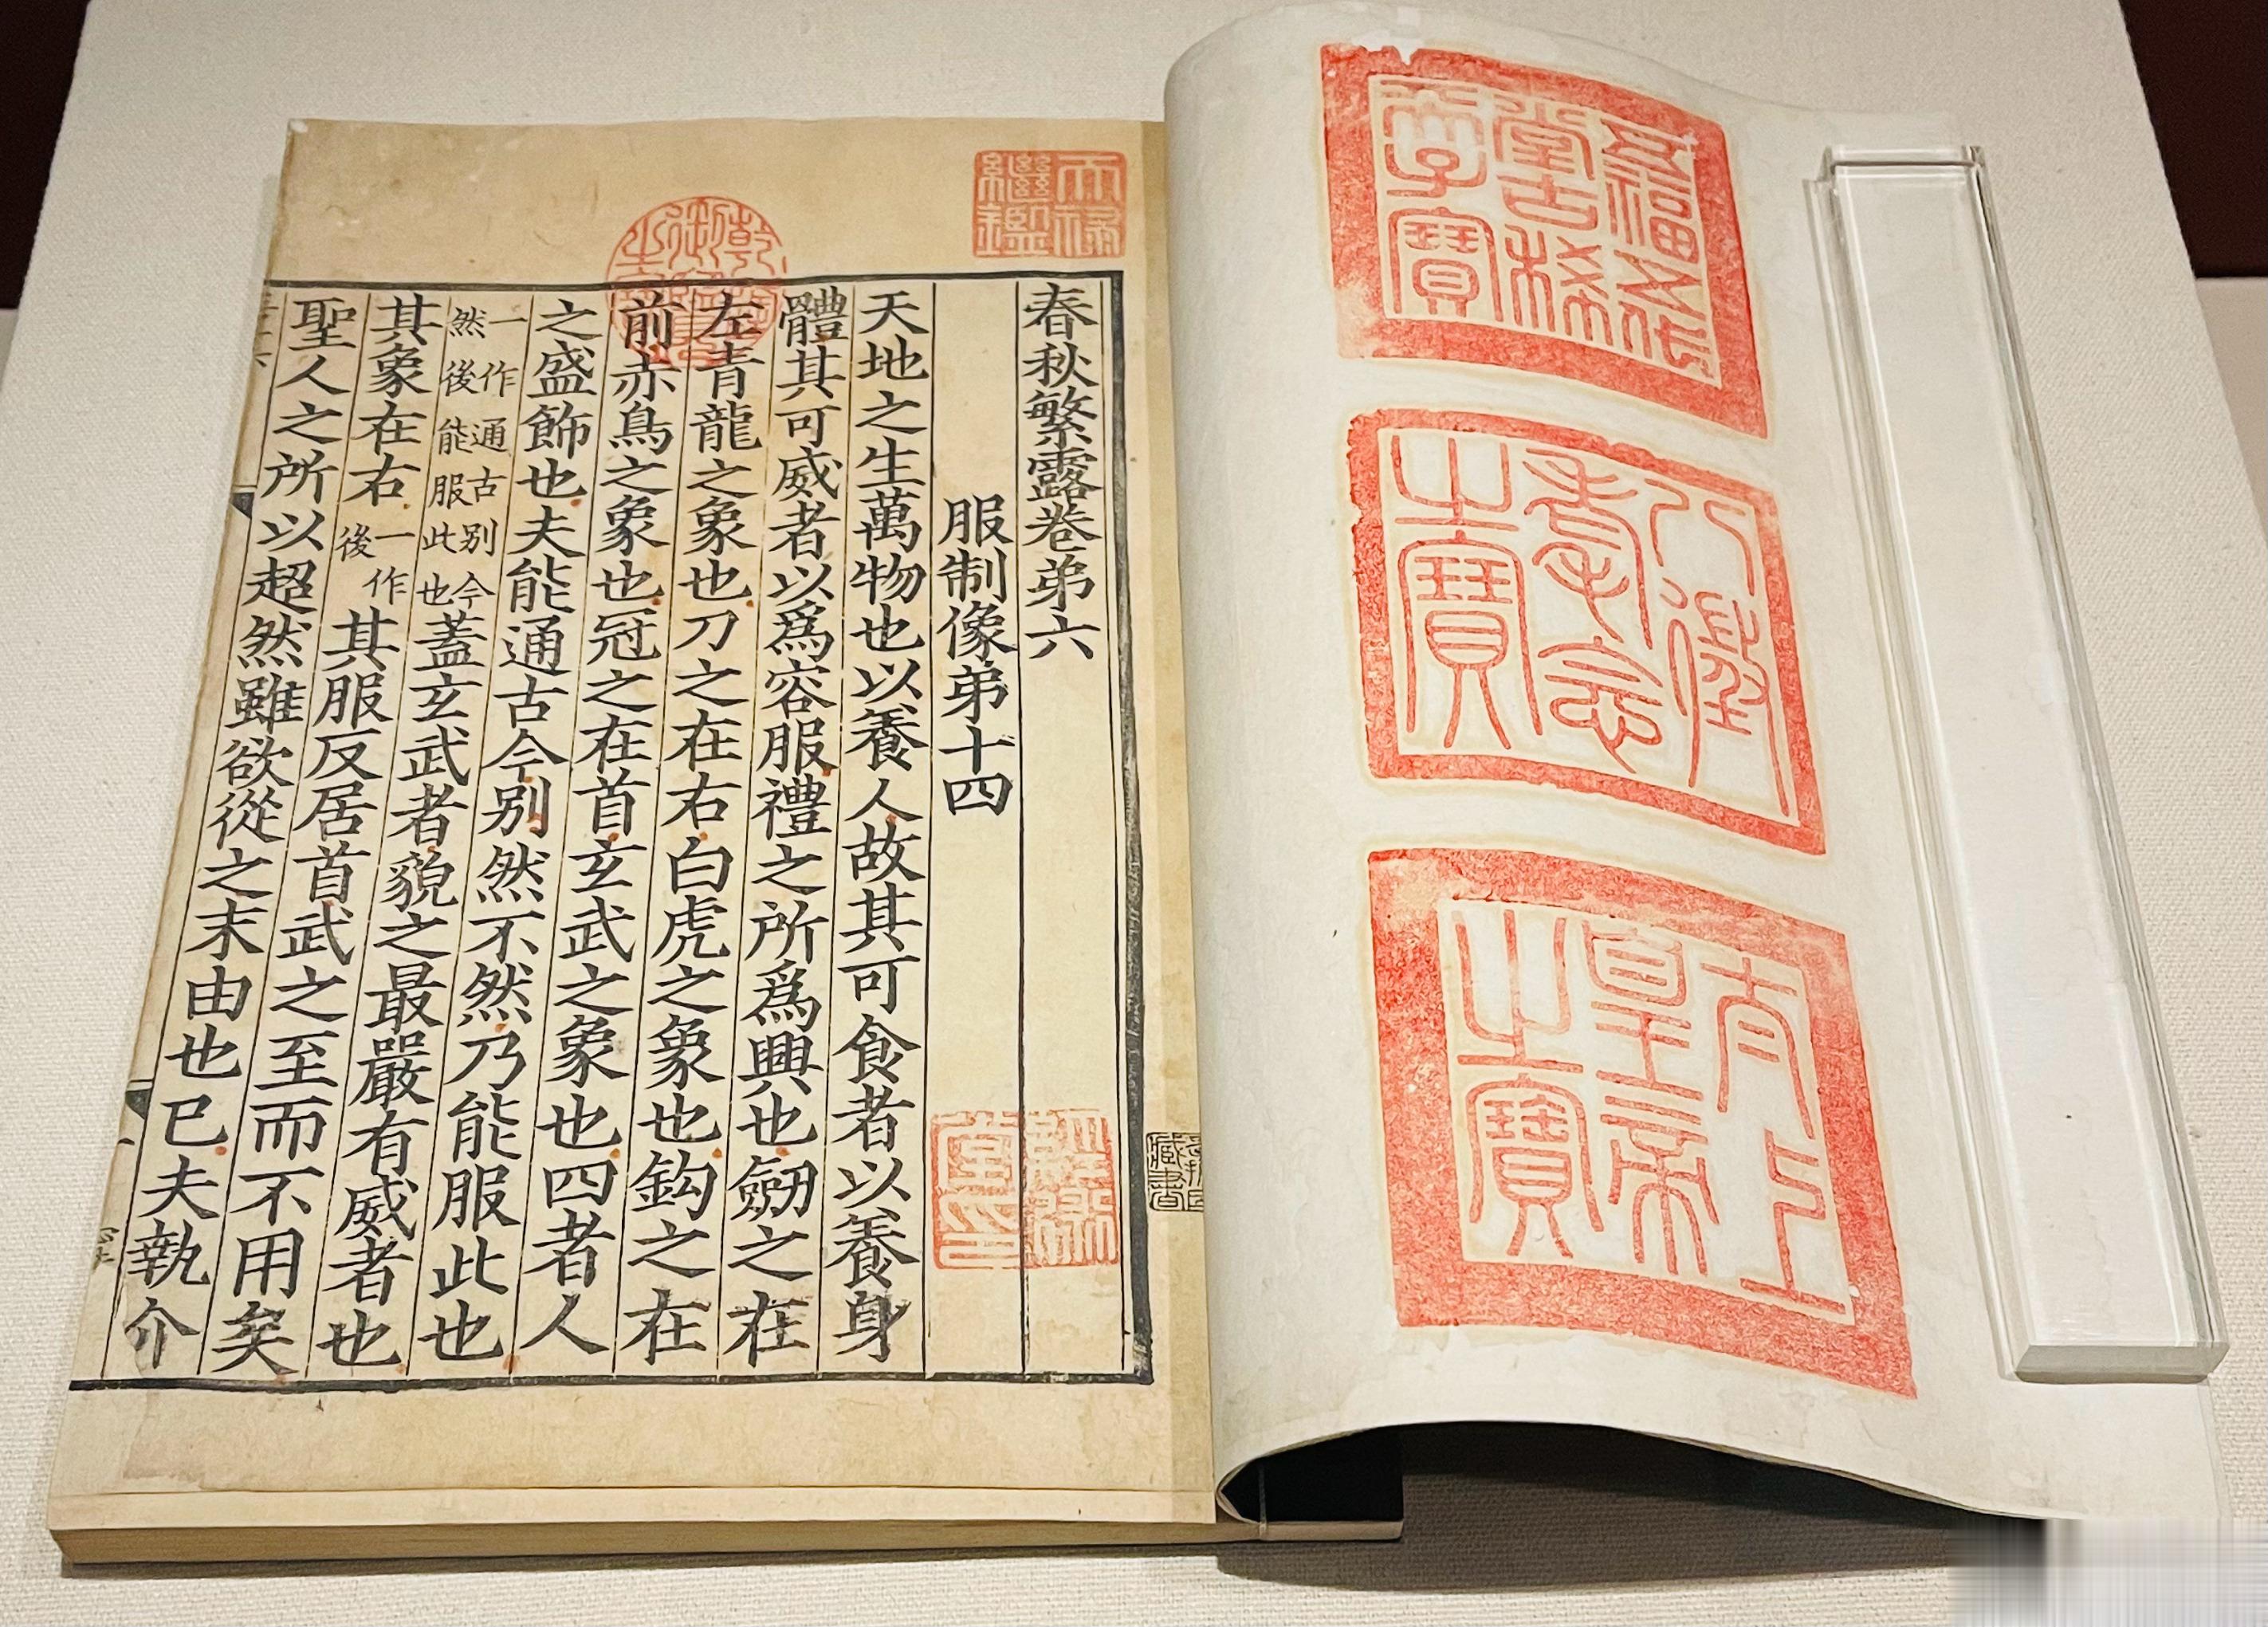 五福五代
堂古稀
天子寶
八徵
耄念
之寶
太上
皇帝
之寶
天祿
繼鑑
乾隆御覽之寶
春秋繁露卷弟六
服制像弟十四
天地之生萬物也以養人故其可食者以養身
體其可威者以爲容服禮之所爲興也劒之在
左青龍之象也刀之在右白虎之象也鈎之在
前赤鳥之象也冠之在首玄武之象也四者人
之盛飾也夫能通古今别然不然乃能服此也
一作通古别今然後能服此也蓋玄武者貌之最嚴有威者也
其象在右一作後其服反居首武之至而不用矣
聖人之所以超然雖欲從之末由也已夫執介
藏書